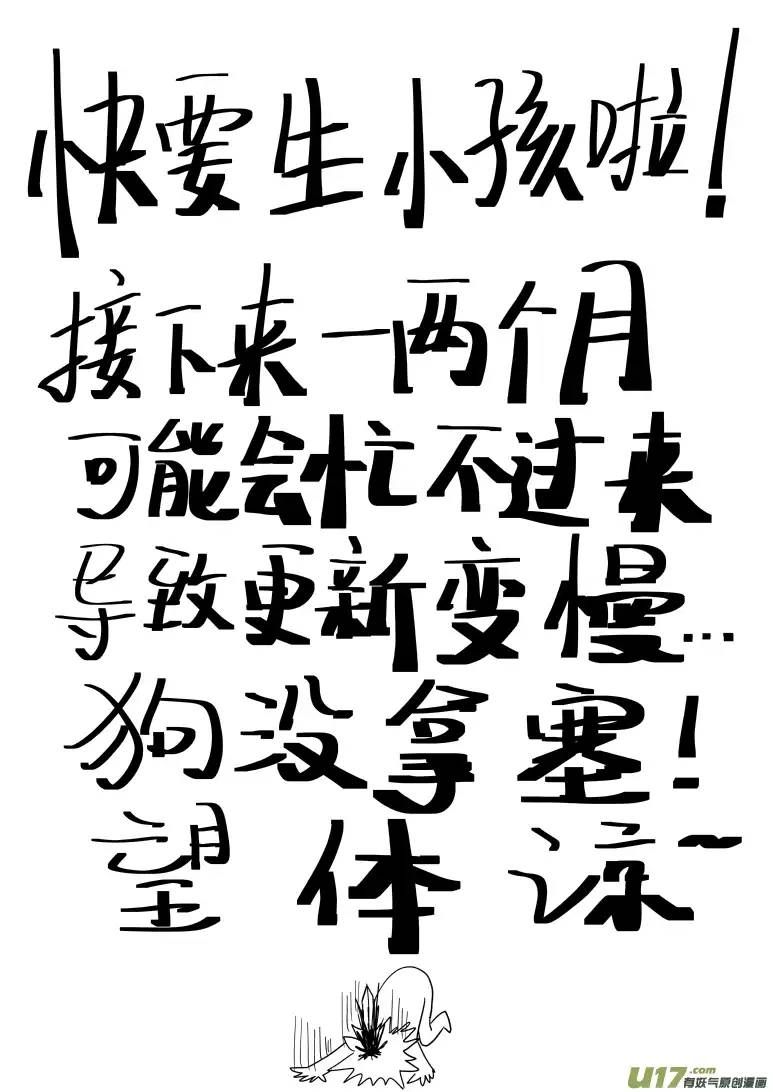 快要生小孩啦!
接下来一两个月
可能会忙不过来
导致更新变慢...
狗没拿塞!
望体凉~
U17.com
有妖气原创漫画